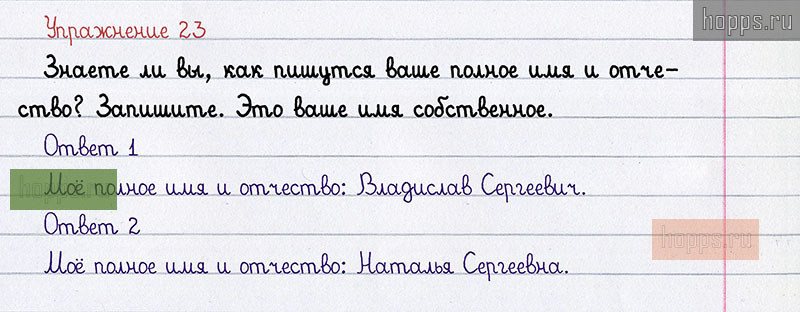 Упражнение 23
hopps.ru
Знаете ли вы, как пишутся ваше полное имя и отче-
ство? Запишите. Это ваше имя собственное.
Ответ 1
hopps.ru
Моё полное имя и отчество: Владислав Сергеевич.
Ответ 2
hopps.ru
Моё полное имя и отчество: Наталья Сергеевна.